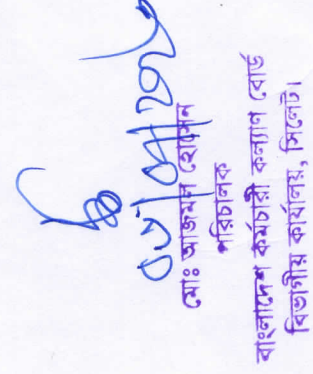 মোঃ আজমল হোসেন
পরিচালক
বাংলাদেশ কর্মচারী কল্যাণ বোর্ড
বিভাগীয় কার্যালয়, সিলেট।